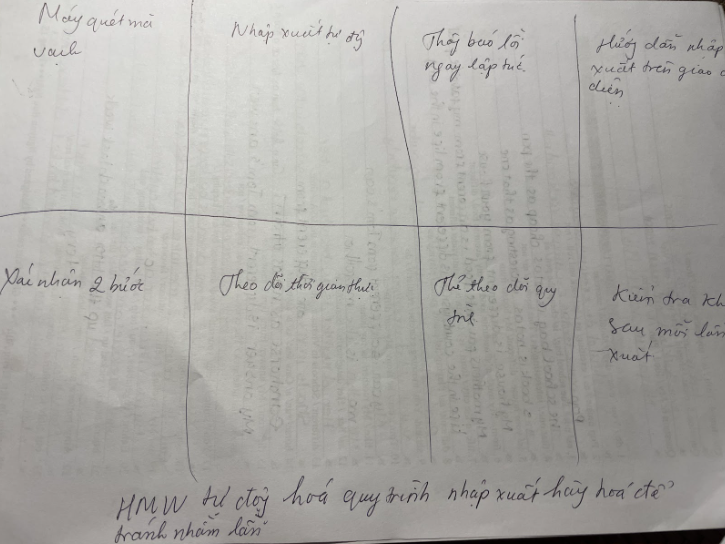 Máy quét mã
vạch
Nhập xuất tự độ
Thôg báo lỗi
ngay lập tức
Hướg dẫn nhập
xuất trên giao d
diện
Xác nhận 2 bước
Theo dõi thời gian thực
Thẻ theo dõi quy
Kiểm tra kh
sau mỗi lần
xuất
HMW tự độg hoá quy trình nhập xuất hàg hoá để
tránh nhầm lẫn